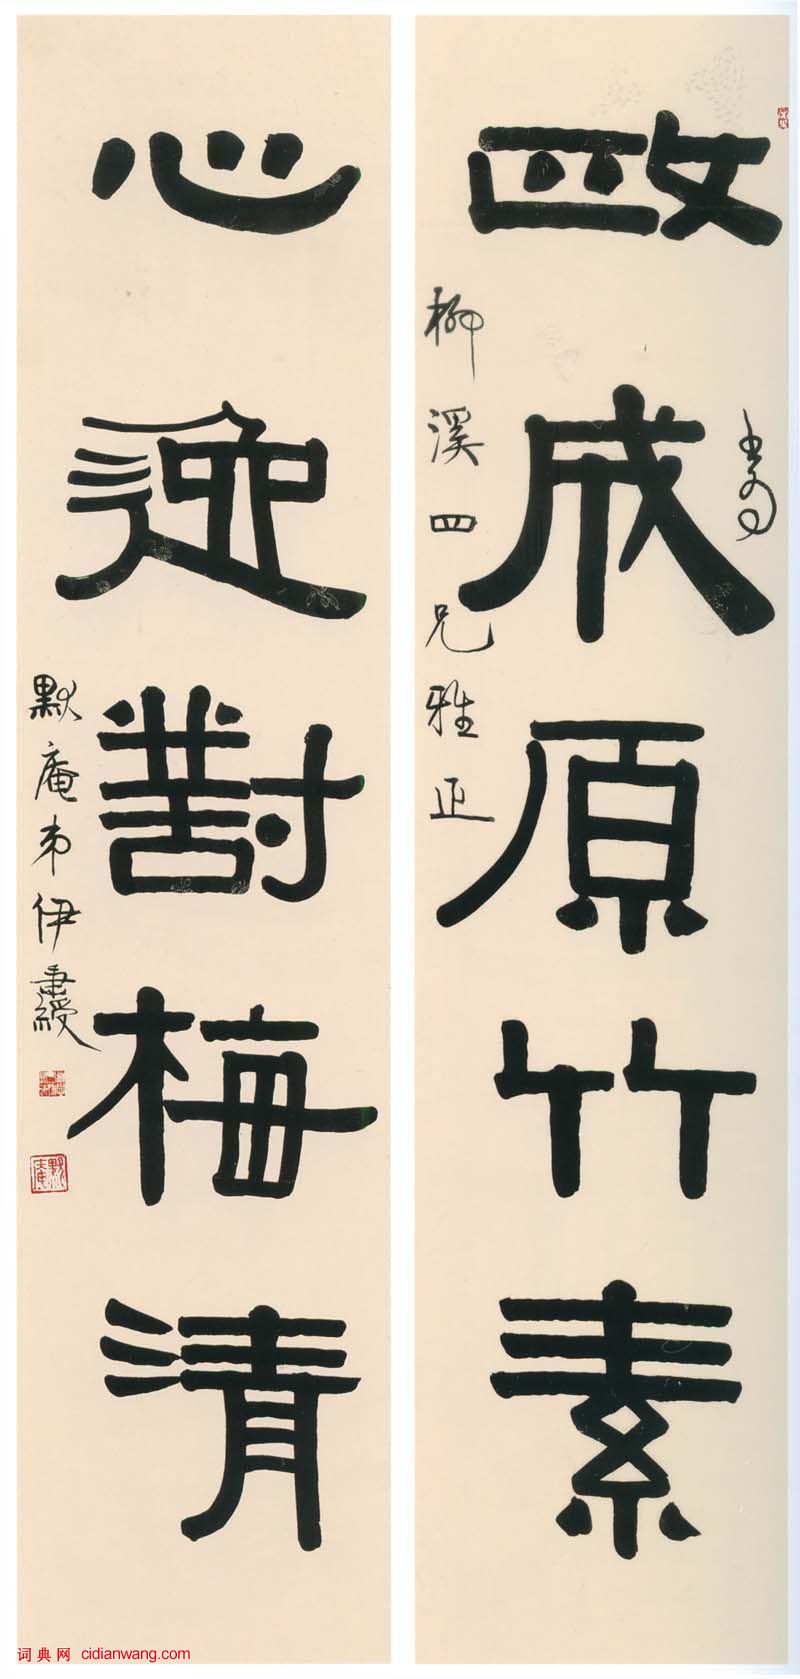 政成原竹素
書為
柳溪四兄雅正
心逸對梅清
默庵弟伊秉綬
默庵
词典网 cidianwang.com